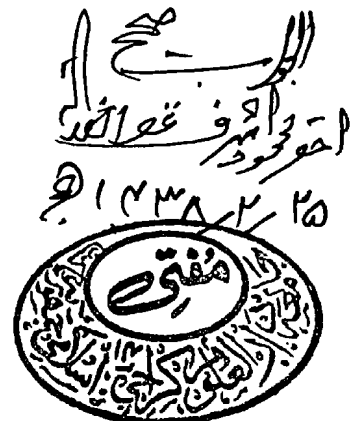 الجواب صحیح
احقر محمود اشرف غفر اللہ
۲۵/۲/۱۴۳۸ھ
مفتی
دارالعلوم کراچی